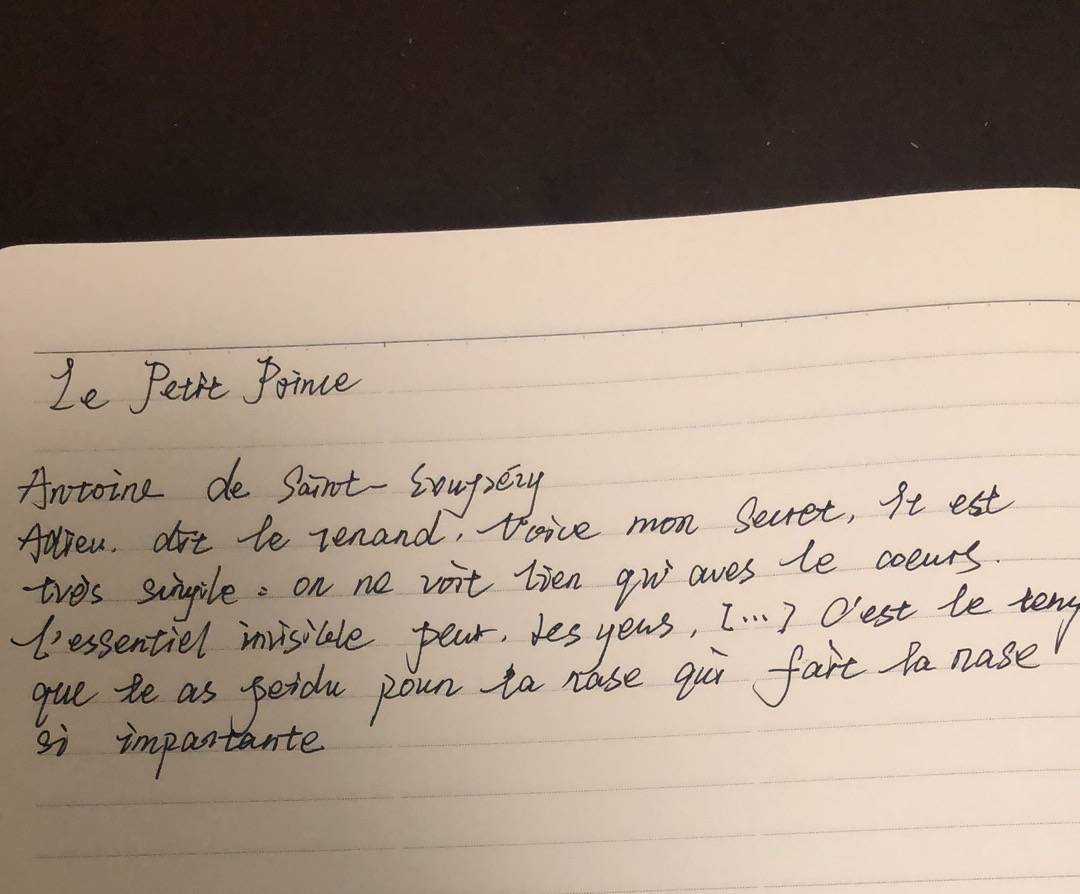 Le Petit Prince
Antoine de Saint-Exupéry
Adieu. dit le renard. Voice mon Secret, Il est
très simple: on ne voit bien qu'aves le coeurs.
L'essentiel invisible peur. les yeus, [...] C'est le temp
que te as perdu pour ta rose qui fait ta rose
si importante